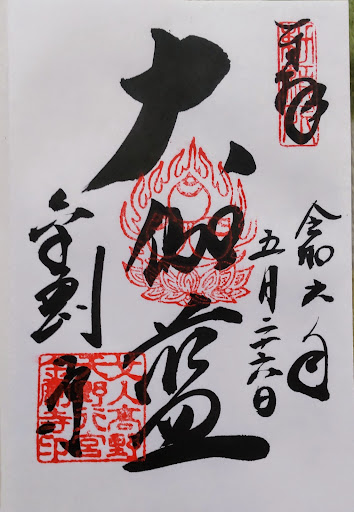 奉拝
令和六年
五月二十六日
大伽藍
金剛寺
女人高野
天野行宮
金剛寺印